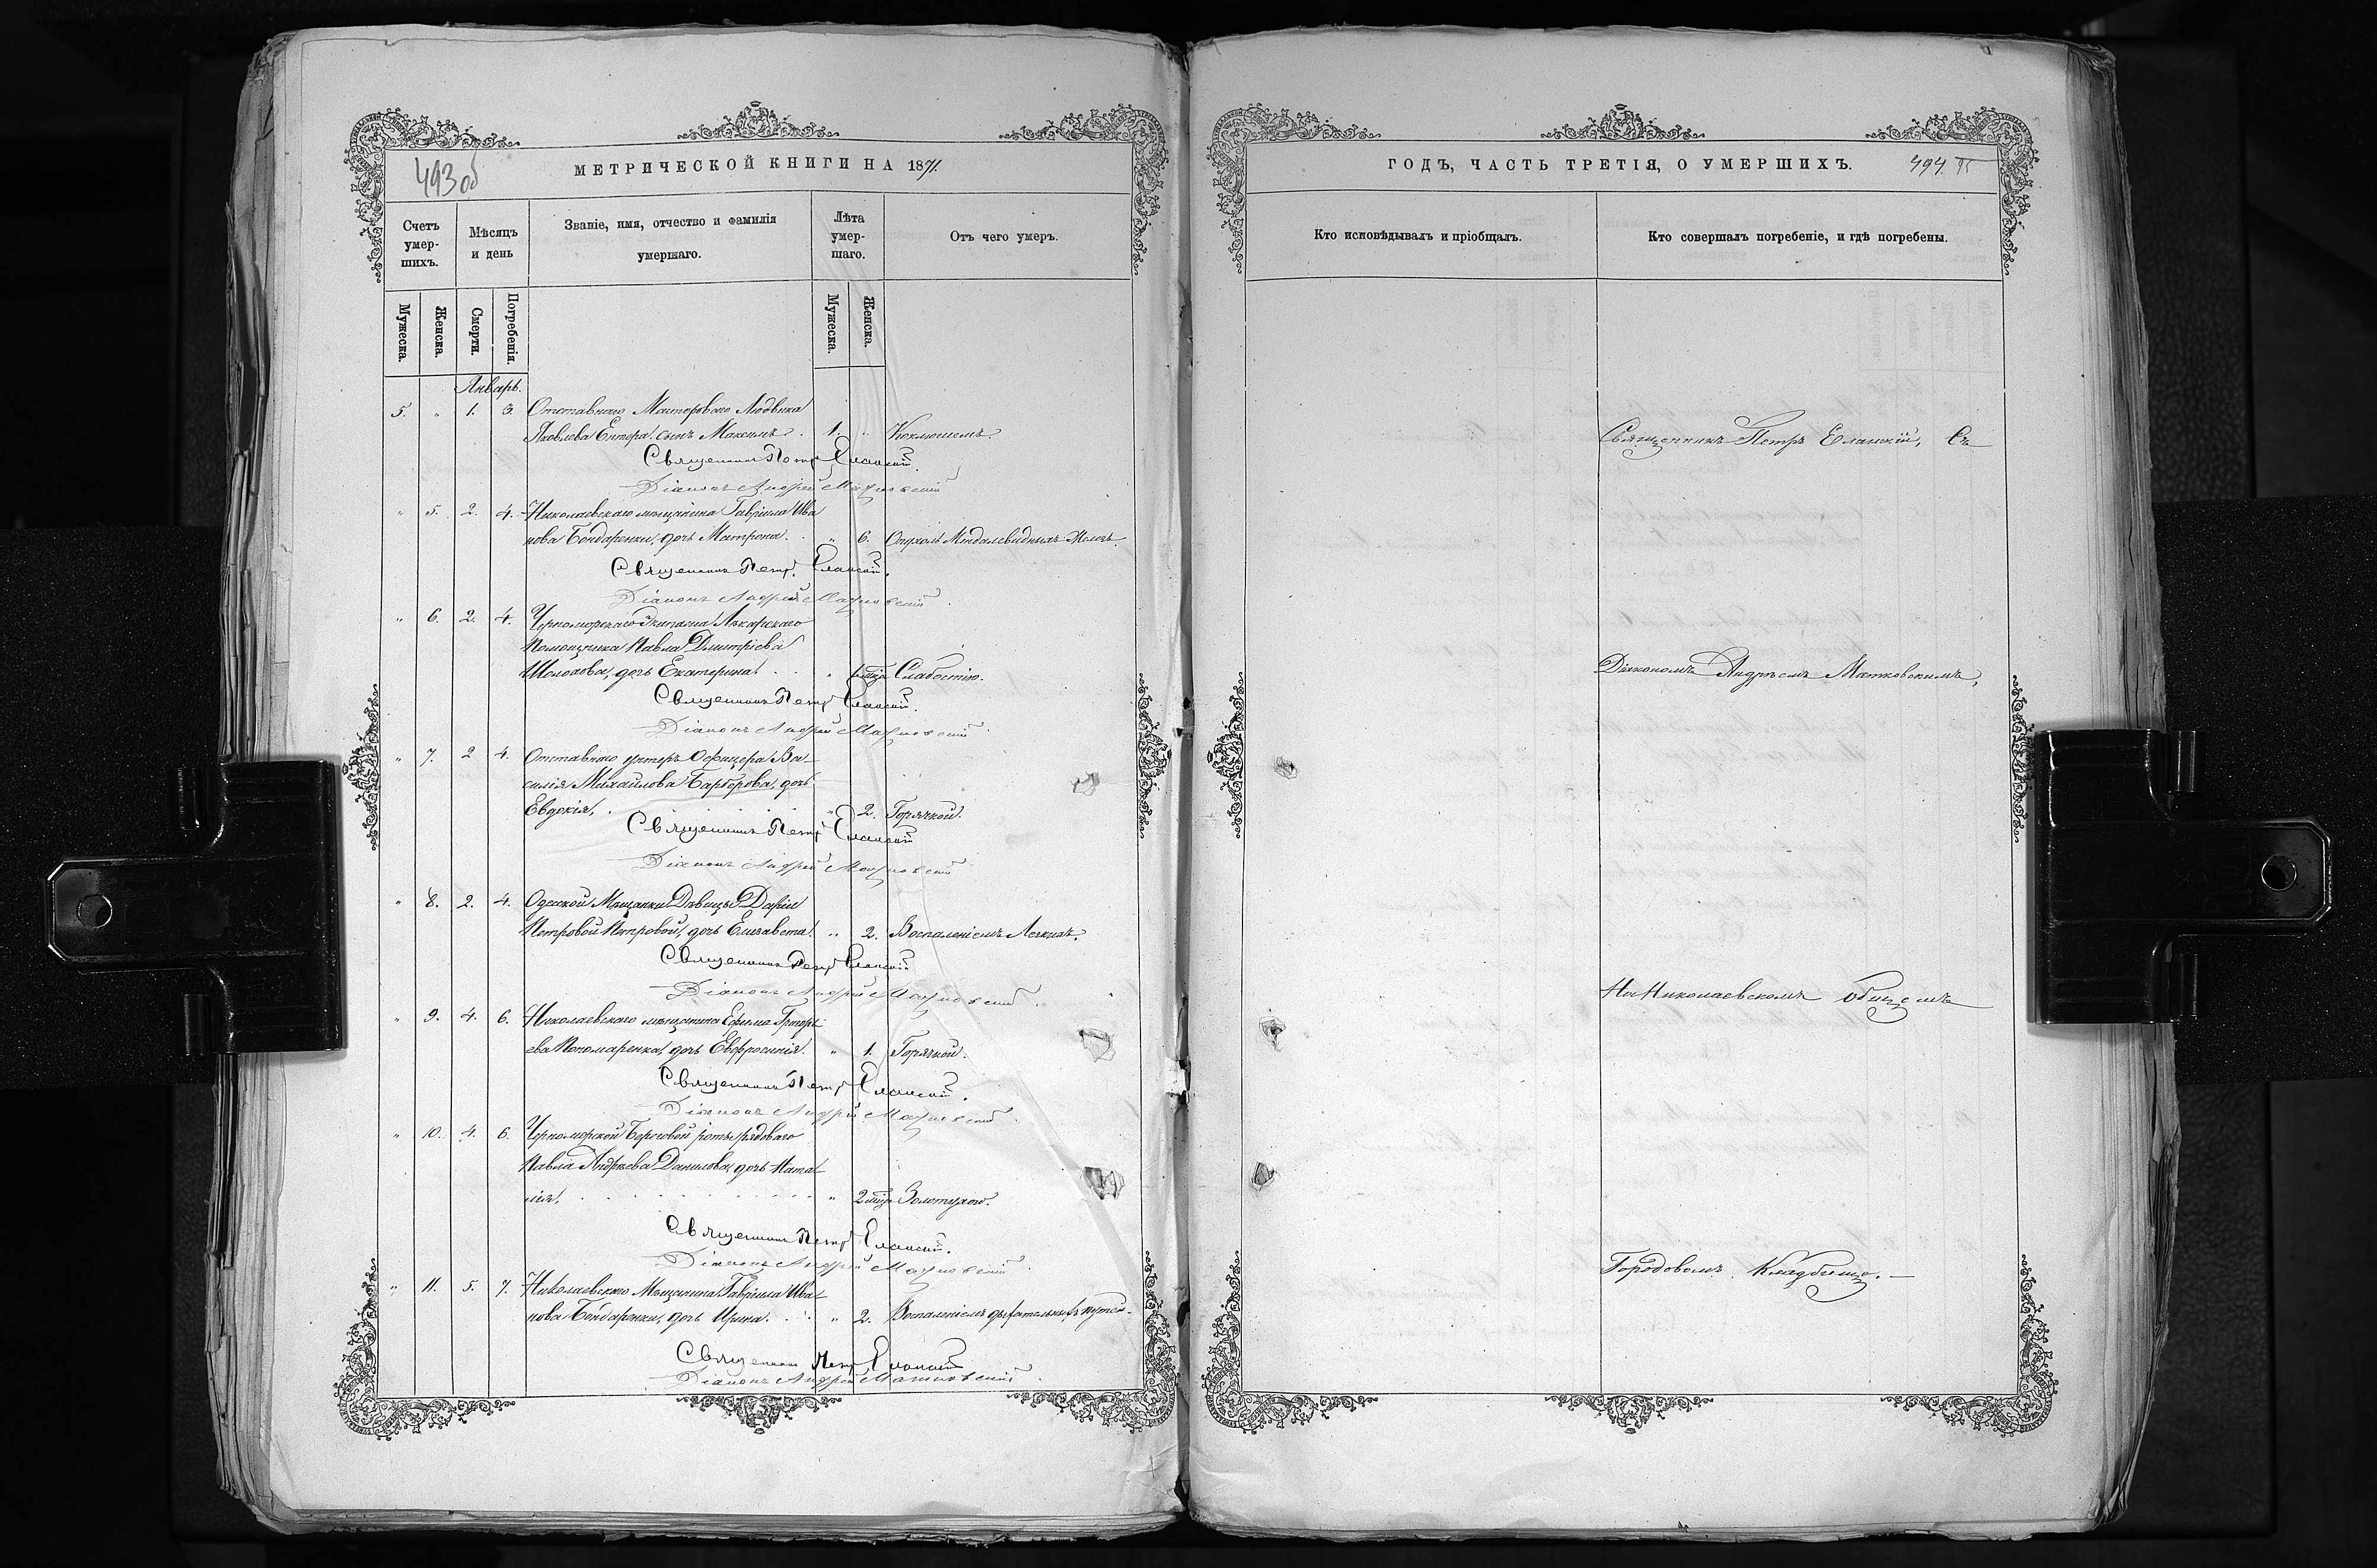 493 об
МЕТРИЧЕСКОЙ КНИГИ НА 1871.
Счетъ умер-шихъ.
Мѣсяцъ и день
Званіе, имя, отчество и фамилія умершаго.
Лѣта умер-шаго.
Отъ чего умеръ.
Мужеска.
Женска.
Смерти.
Погребенія.
Мужеска.
Женска.
Январь.
5. " 1. 3. Отставнаго Мастероваго Людвика
Яковлева сынъ Максимъ. 1. " Коклюшемъ.
Священникъ Петръ Еланскій.
Діаконъ Андрей Матковскій
" 5. 2. 4. Николаевскаго мѣщанина Гавріила Ива
нова Бондаренки, дочь Матрона. " 6. Опухоль Миндалевидныхъ Железъ.
Священникъ Петръ Еланскій.
Діаконъ Андрей Матковскій
" 6. 2. 4. Черноморскаго Экипажа Лекарскаго
Помощника Павла Дмитріева
Шолохова, дочь Екатерина. " Слабостію.
Священникъ Петръ Еланскій.
Діаконъ Андрей Матковскій
" 7. 2 4. Отставнаго унтеръ Офицера Ва-
силія Михайлова дочь
Евдокія, " 2. Горячкой.
Священникъ Петръ Еланскій
Діаконъ Андрей Матковскій
" 8. 2. 4. Одесской Мѣщанки Дѣвицы Даріи
Петровой Петровой, дочь Елизавета. " 2. Воспаленіемъ Легкихъ.
Священникъ Петръ Еланскій
Діаконъ Андрей Матковскій
" 9. 4. 6. Николаевскаго мѣщанина Ефима Григорь
ева Пономаренка, дочь Евфросинія. " 1. Горячкой.
Священникъ Петръ Еланскій.
Діаконъ Андрей Матковскій
" 10. 4. 6. Черноморской Береговой роты рядоваго
Павла Андреева Данилова, дочь Ната
лія, " 2 мѣс. Золотухою.
Священникъ Петръ Еланскій.
Діаконъ Андрей Матковскій
" 11. 5. 7. Николаевскаго Мѣщанина Гавріила Ива
нова Бондаренки, дочь Ирина. " 2. Воспаленіемъ дыхательныхъ путей.
Священникъ Петръ Еланскій
Діаконъ Андрей Матковскій
ГОДЪ, ЧАСТЬ ТРЕТІЯ, О УМЕРШИХЪ.
494.
Кто исповѣдывалъ и пріобщалъ.
Кто совершалъ погребеніе, и гдѣ погребены.
Священникъ Петръ Еланскій, Съ
Діакономъ Андреемъ Матковскимъ,
На Николаевскомъ общемъ
Городовомъ Кладбищѣ.—